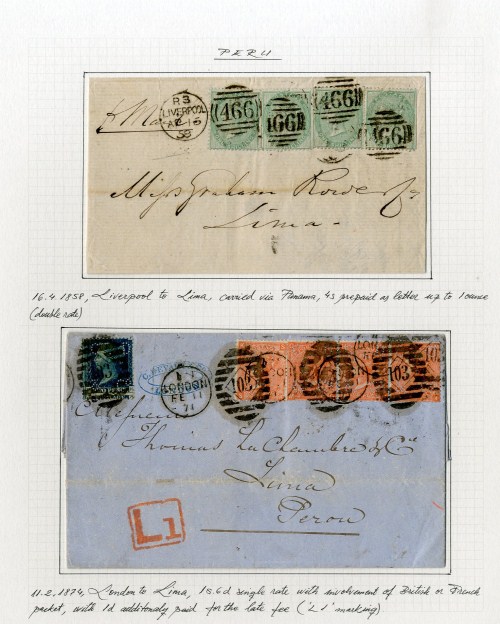 PERU
R3
LIVERPOOL
AP 16
58
466
466
466
466
Miss Graham Rowe & Co
Lima
16.4.1858, Liverpool to Lima, carried via Panama, 4s prepaid as letter up to 1 ounce
(double rate)
LONDON
FE 11
71
103
103
Messieurs
Thomas La Chambre & Cie
Lima
Perou
L1
11.2.1874, London to Lima, 1s.6d single rate with involvement of British or French
packet, with 1d additionaly paid for the late fee ('L1' marking)